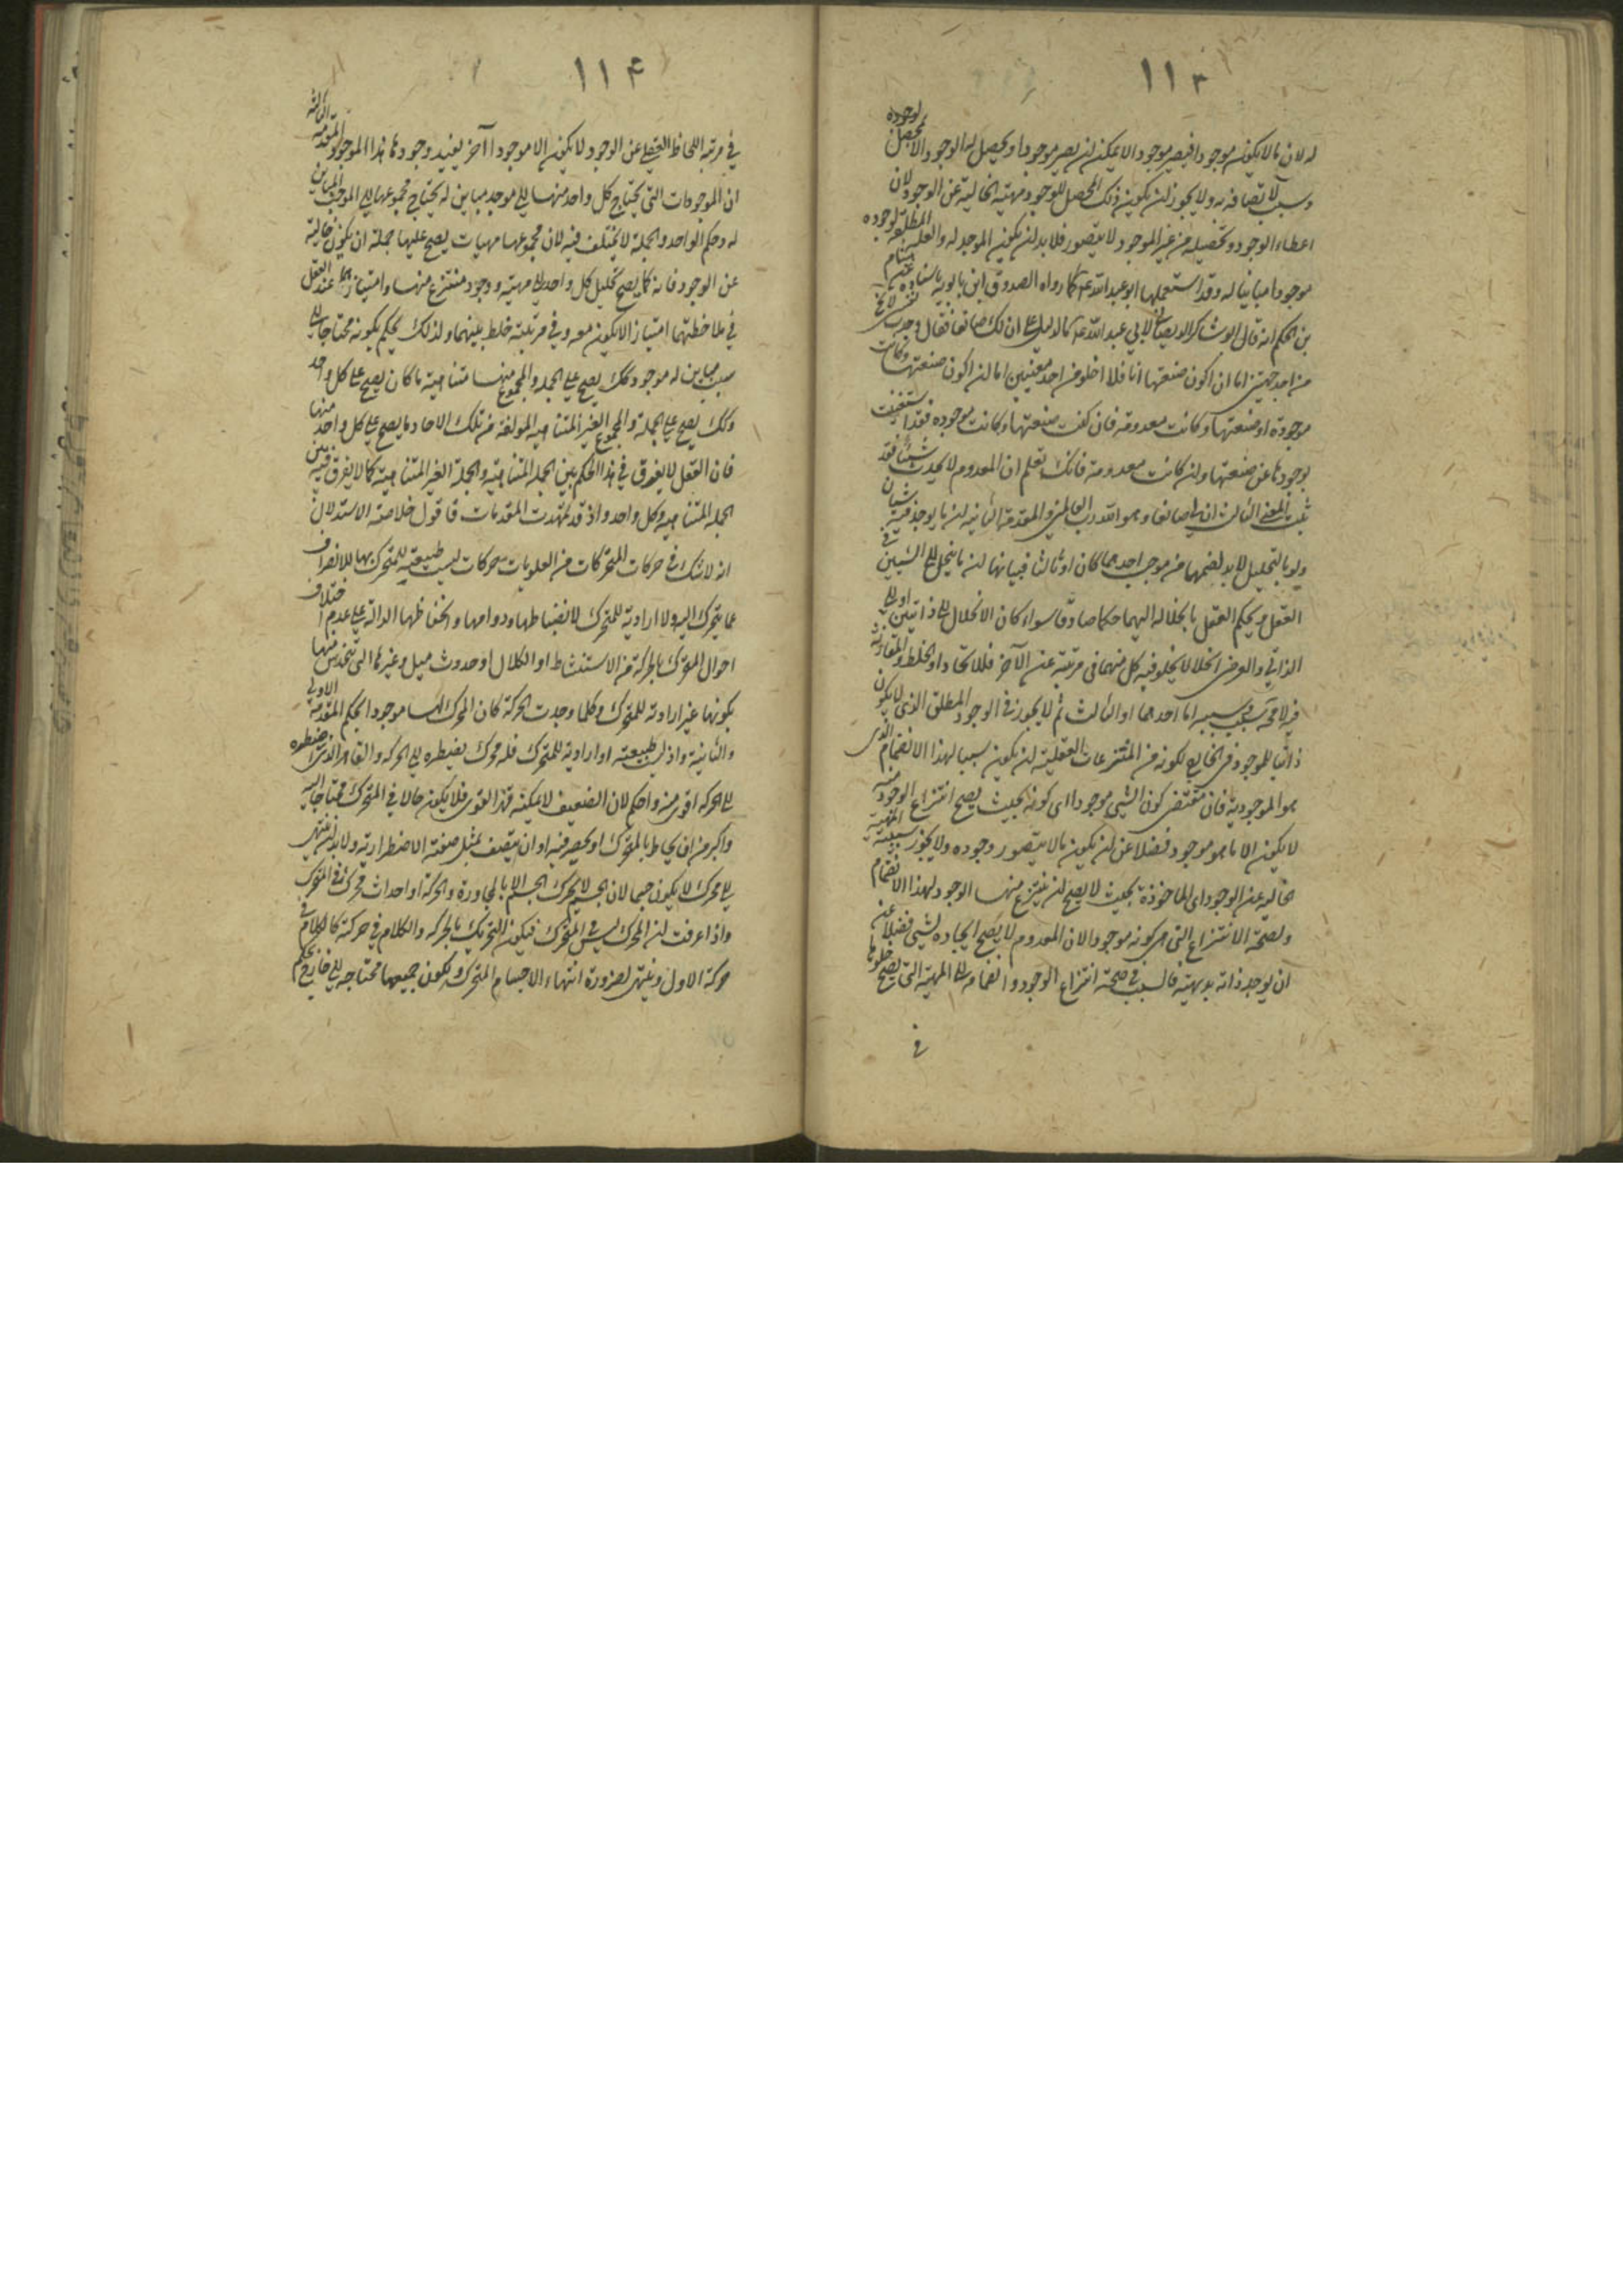 ١١٣
له لان ما لا يكون موجودا فيصير موجودا لا يمكن ان يصير موجودا و يحصل له الوجود الا بمحصل لوجوده
و سبب لاتصافه به و لا يجوز ان يكون ذلك المحصل للوجود مهيته الخالية عن الوجود لان
اعطاء الوجود و تحصيله من غير الموجود لا يتصور فلا بد ان يكون الموجد له و العلة المطلقة لوجوده
موجودا مباينا له و قد استعملها ابو عبد الله ع كما رواه الصدوق ابن بابويه باسناده عن هشام
بن الحكم انه قال ابو شاكر الديصاني لابي عبد الله ع ما الدليل على ان لك صانعا فقال وجدت نفسي لا تخ
من احد جهتين اما ان اكون صنعتها انا فلا اخلو من احد معنيين اما ان اكون صنعتها و كانت
موجودة او صنعتها و كانت معدومة فان كنت صنعتها و كانت موجودة فقد استغنيت
بوجودها عن صنعتها و ان كانت معدومة فانك تعلم ان المعدوم لا يحدث شيئا فقد
ثبت المعنى الثالث ان لي صانعا و هو الله رب العالمين و المقدمة الثانية ان ما يوجد فيه شيئان
ولو بالتحليل لا بد لضمهما من موجب احدهما كان او ثالثا فبيانها ان ما ينحل الى الشيئين في
العقل و يحكم العقل بانحلاله اليهما حكما صادقا سواء كان الانحلال الى ذاتيين او الى
الذاتي و العرضي انحلالا يخلو فيه كل منهما في مرتبة عن الآخر فللاتحاد او الخلط و المقارنة
فيه لا محة سبب و سببه اما احدهما او الثالث ثم لا يجوز في الوجود المطلق الذي لا يكون
ذاتيا للموجود في الخارج لكونه من المنتزعات العقلية ان يكون سببا لهذا الانضمام الذي
هو الموجودية فان مقتضى كون الشيء موجودا اي كونه بحيث يصح انتزاع الوجود منه
لا يكون الا ما هو موجود فضلا عن ان يكون ما لا يتصور وجوده و لا يجوز سببية المهية
خالية عن الوجود اي الماخوذة بحيث لا يصح ان ينتزع منها الوجود لهذا الانضمام
و لصحة الانتزاع التي هي كونه موجودا لان المعدوم لا يصح ايجاده لشيء فضلا عن
ان يوجد ذاته بديهية فالسبب في صحة انتزاع الوجود و انضمامه الى المهية التي يصح خلوها
في
١١۴
في مرتبة اللحاظ العقلي عن الوجود لا يكون الا موجودا آخر يفيد وجودها هذا الموجود المقدمة الثالثة
ان الموجودات التي يحتاج كل واحد منها الى موجد مباين له يحتاج مجموعها الى الموجد المباين
له و حكم الواحد و الجملة لا يختلف فيه لان مجموعها مهيات يصح عليها جملة ان يكون خالية
عن الوجود فانه كما يصح تحليل كل واحد الى مهيته و وجود منتزع منها و امتيازهما عند العقل
في ملاحظتهما امتيازا لا يكون معه و في مرتبته خلط بينهما و لذلك يحكم بكونه محتاجا الى
سبب مباين له موجود كك يصح على الجملة و المجموع منها متناهية ما كان يصح على كل واحد
و كك يصح على الجملة و المجموع الغير المتناهية المؤلفة من تلك الاحاد ما يصح على كل واحد منها
فان العقل لا يفرق في هذا الحكم بين الجملة المتناهية و الجملة الغير المتناهية كما لا يفرق فيه بين
الجملة المتناهية و كل واحد و اذ قد تمهدت المقدمات فاقول خلاصة الاستدلال
انه لا شك في حركات المتحركات من العلويات حركات ليست طبيعية للمتحرك بها للانصراف
عما يتحرك اليه و لا ارادية للمتحرك لانضباطها و دوامها و انحفاظها الدالة على عدم اختلاف
احوال المتحرك بالحركة من الاستنشاط او الكلال او حدوث ميل و غيرها التي تتحدس منها
بكونها غير ارادية للمتحرك و كلما وجدت الحركة كان المحرك لها موجودا بحكم المقدمة الاولى
و الثانية و اذ ليست طبيعية او ارادية للمتحرك فله محرك يضطره الى الحركة و القاهر الذي اضطره
الى الحركة اقوى منه و احكم لان الضعيف لا يمكنه قهر القوي فلا يكون حالا في المتحرك محتاجا اليه
و اكبر من ان يحاط بالمتحرك او يحصر فيه او ان يتصف بمثل صفته الاضطرارية و لا بد ان ينتهي
الى محرك لا يكون جسما لان الجسم لا يحرك الجسم الا بالمجاورة و الحركة او احداث محرك في المتحرك
و اذا عرفت ان المحرك ليس في المتحرك فيكون التحريك بالحركة و الكلام في حركته كالكلام في
حركة الاول و ينتهي لضرورة انتهاء الاجسام المتحركة و يكون جميعها محتاجة الى خارج بحكم